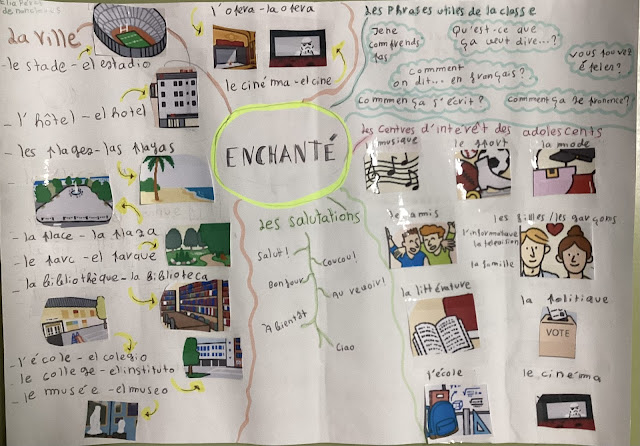 La ville
- le stade - el estadio
- l'hôtel - el hotel
- les plages - las playas
- la place - la plaza
- le parc - el parque
- la bibliothèque - la biblioteca
- l'école - el colegio
- le collège - el instituto
- le musée - el museo
l'opera - la opera
le cinéma - el cine
ENCHANTÉ
Les salutations
Salut!
Coucou!
Bonjour
Au revoir!
À bientôt
Ciao
Les phrases utiles de la classe
Je ne
comprends
pas
Qu'est-ce que
ça veut dire...?
vous pouvez
épeler?
comment
on dit... en français?
commen ça s'écrit?
comment ça se prononce?
Les centres d'interêt des adolescents
musique
le sport
la mode
les amis
l'informatique
la television
la famille
les filles / les garçons
la littérature
la politique
VOTE
l'école
le cinéma